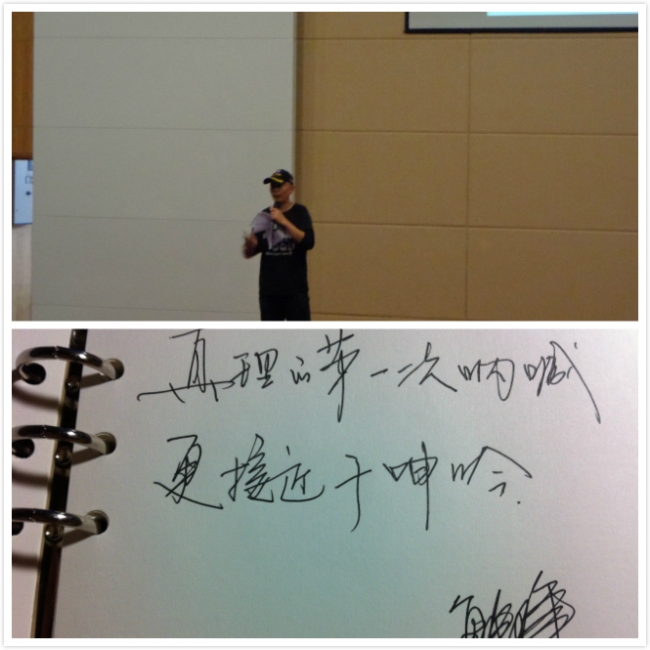 真理的第一次呐喊
更接近于呻吟.